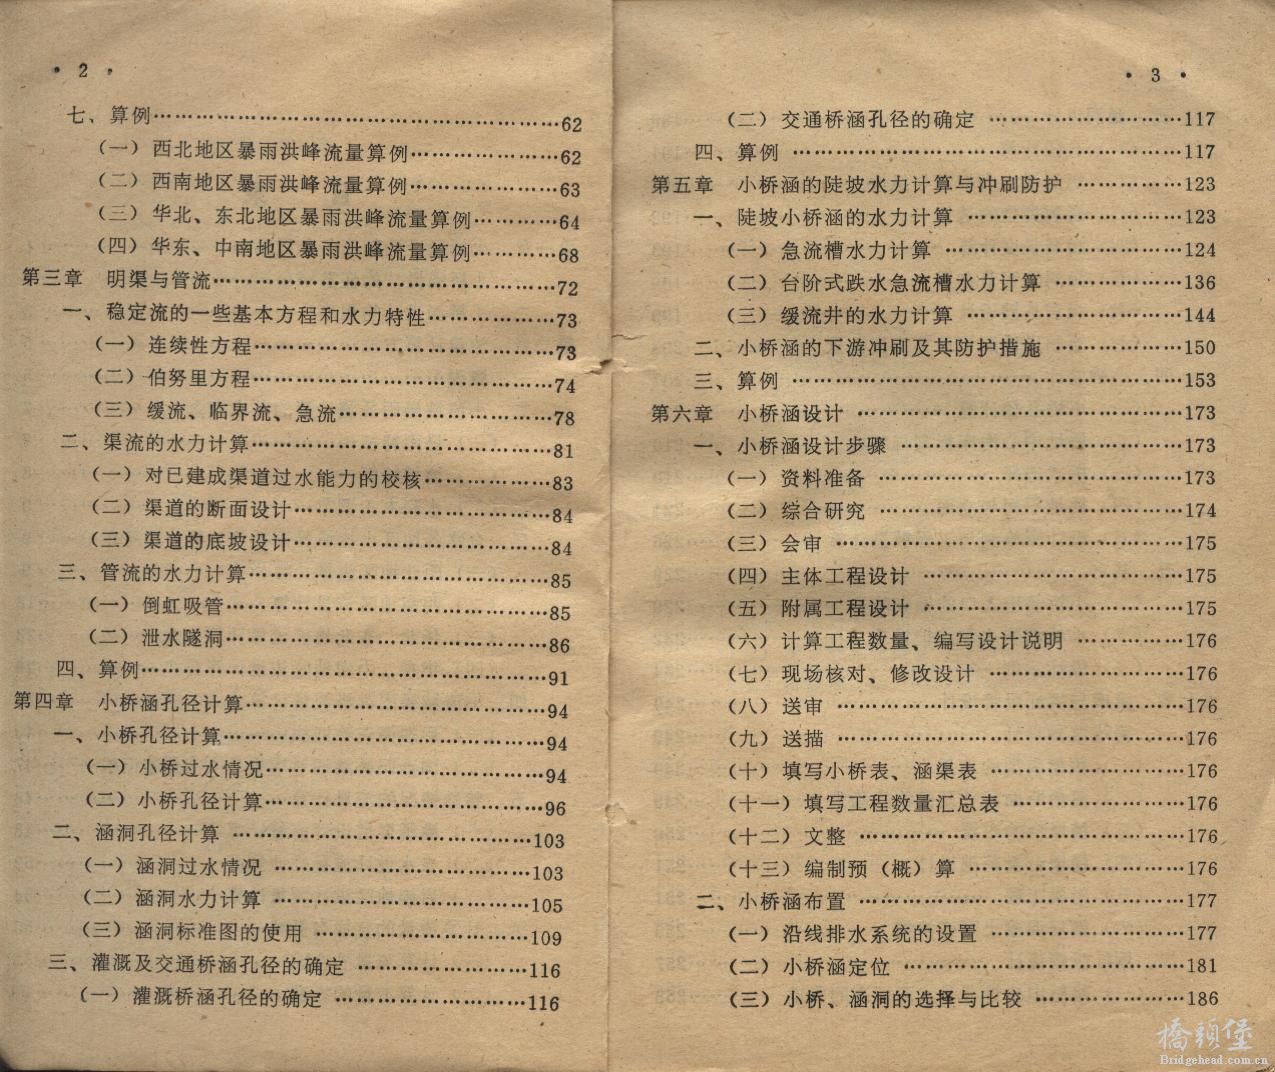 • 2 •
七、算例……………………………………………………62
（一）西北地区暴雨洪峰流量算例…………………62
（二）西南地区暴雨洪峰流量算例…………………63
（三）华北、东北地区暴雨洪峰流量算例…………64
（四）华东、中南地区暴雨洪峰流量算例…………68
第三章 明渠与管流……………………………………………72
一、稳定流的一些基本方程和水力特性………………73
（一）连续性方程………………………………………73
（二）伯努里方程………………………………………74
（三）缓流、临界流、急流……………………………78
二、渠流的水力计算………………………………………81
（一）对已建成渠道过水能力的校核………………83
（二）渠道的断面设计…………………………………84
（三）渠道的底坡设计…………………………………84
三、管流的水力计算………………………………………85
（一）倒虹吸管…………………………………………85
（二）泄水隧洞…………………………………………86
四、算例……………………………………………………91
第四章 小桥涵孔径计算………………………………………94
一、小桥孔径计算…………………………………………94
（一）小桥过水情况……………………………………94
（二）小桥孔径计算……………………………………96
二、涵洞孔径计算 ………………………………………103
（一）涵洞过水情况 …………………………………103
（二）涵洞水力计算 …………………………………105
（三）涵洞标准图的使用 ……………………………109
三、灌溉及交通桥涵孔径的确定 ……………………116
（一）灌溉桥涵孔径的确定 …………………………116
• 3 •
（二）交通桥涵孔径的确定 …………………………117
四、算例 …………………………………………………117
第五章 小桥涵的陡坡水力计算与冲刷防护 ……………123
一、陡坡小桥涵的水力计算 …………………………123
（一）急流槽水力计算 ………………………………124
（二）台阶式跌水急流槽水力计算 …………………136
（三）缓流井的水力计算 ……………………………144
二、小桥涵的下游冲刷及其防护措施 ………………150
三、算例 …………………………………………………153
第六章 小桥涵设计 …………………………………………173
一、小桥涵设计步骤 ……………………………………173
（一）资料准备 ………………………………………173
（二）综合研究 ………………………………………174
（三）会审 ……………………………………………175
（四）主体工程设计 …………………………………175
（五）附属工程设计 …………………………………175
（六）计算工程数量、编写设计说明 ………………176
（七）现场核对、修改设计 …………………………176
（八）送审 ……………………………………………176
（九）送描 ……………………………………………176
（十）填写小桥表、涵渠表 …………………………176
（十一）填写工程数量汇总表 ………………………176
（十二）文整 …………………………………………176
（十三）编制预（概）算 ……………………………176
二、小桥涵布置 …………………………………………177
（一）沿线排水系统的设置 …………………………177
（二）小桥涵定位 ……………………………………181
（三）小桥、涵洞的选择与比较 ……………………186
橋頭堡
Bridgehead.com.cn